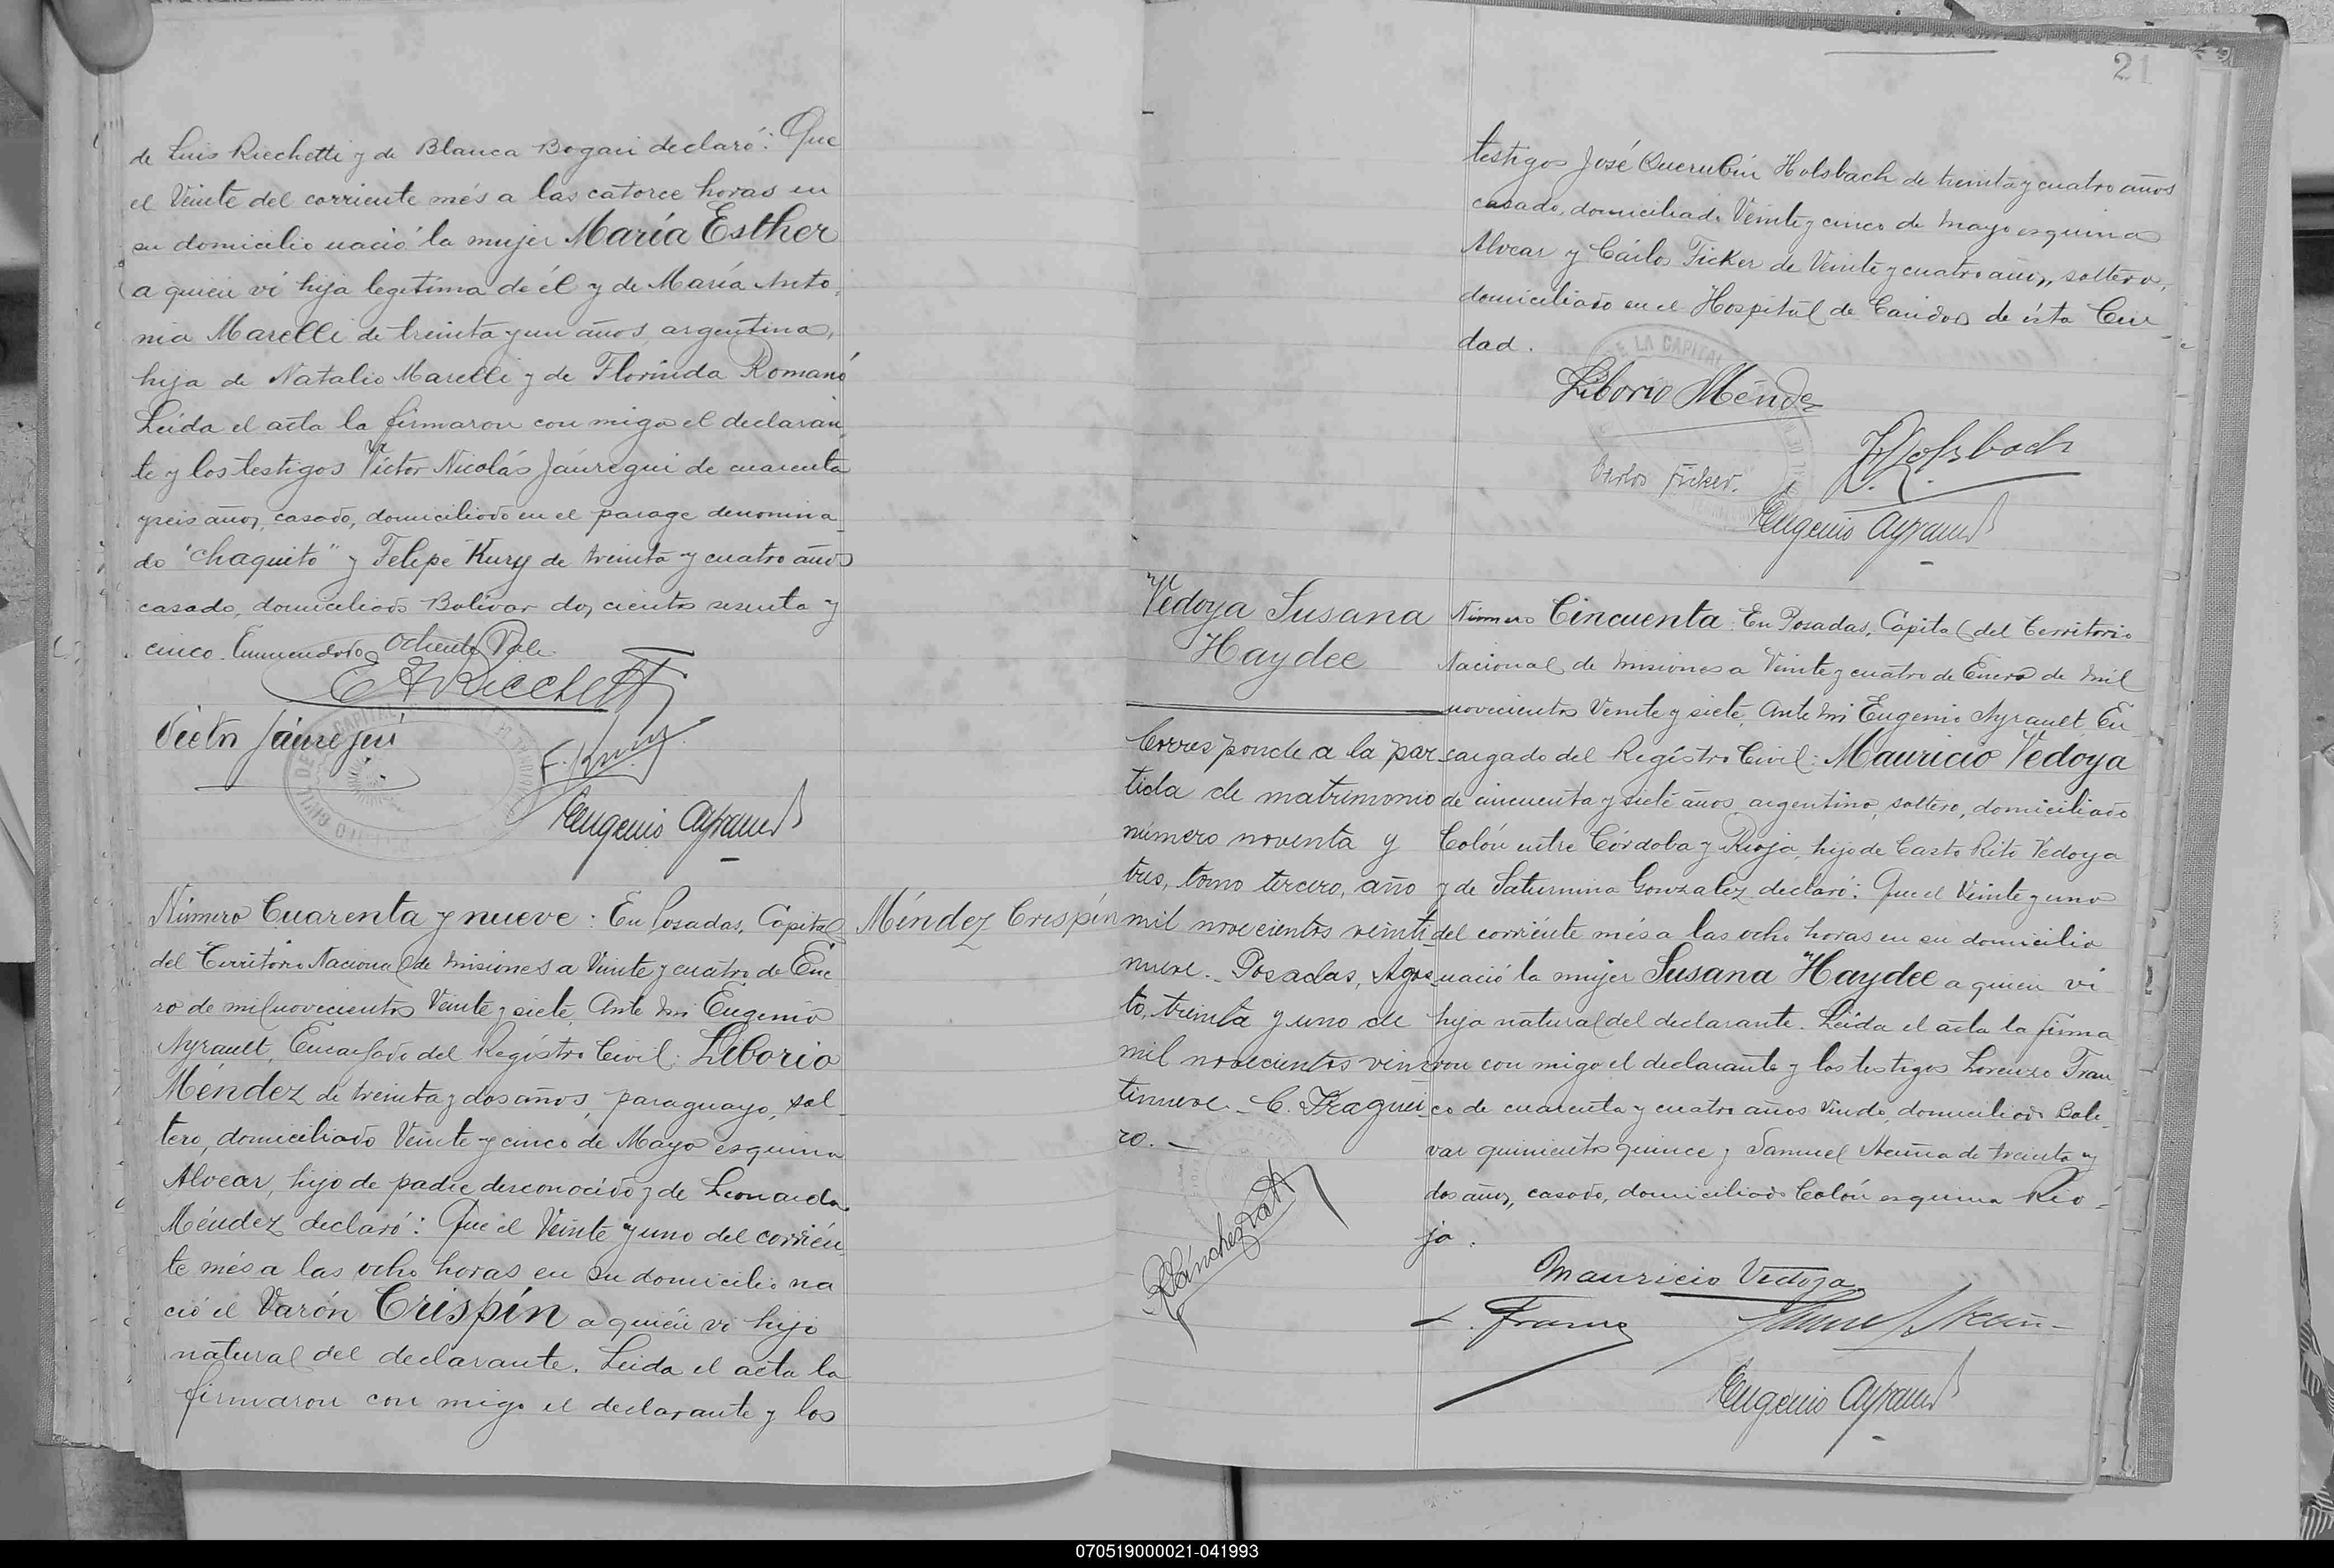 de Luis Ricchetti y de Blanca Bogari declaró: Que
el Veinte del corriente més a las catorce horas en
su domicilio nació la mujer María Esther
a quien ví hija legítima de él y de María Anto-
nia Marelli de treinta y un años, argentina,
hija de Natalio Marelli y de Florinda Romanó
Leida el acta la firmaron con migo el declaran-
te y los testigos Víctor Nicolás Jáuregui de cuarenta
y seis años, casado, domiciliado en el parage denomina-
do "Chaquito" y Felipe Kury de treinta y cuatro años
casado, domiciliado Bolívar dos cientos sesenta y
cinco. Enmendado Vale.
E A Ricchetti
Victor Jáuregui
F. Kury
Eugenio Ayrault
Número Cuarenta y nueve: En Posadas, Capital
del Territorio Nacional de Misiones a Veinte y cuatro de Ene
ro de mil novecientos Veinte y siete, Ante mi Eugenio
Ayrault, Encargado del Registro Civil: Liborio
Méndez de treinta y dos años, paraguayo, sol-
tero, domiciliado Veinte y cinco de Mayo esquina
Alvear, hijo de padre desconocido y de Leonarda
Méndez declaró: Que el Veinte y uno del corrien-
te més a las ocho horas en su domicilio na
ció el Varón Crispín a quien ví hijo
natural del declarante. Leida el acta la
firmaron con migo el declarante y los
Méndez Crispín
21
testigos José Querubín Holsbach de treinta y cuatro años
casado, domiciliado Veinte y cinco de Mayo esquina
Alvear y Cárlos Ficker de Veinte y cuatro años, soltero,
domiciliado en el Hospital de Caridad de ésta Ciu-
dad.
DE LA CAPITAL
Liborio Méndez
Holsbach
Carlos Ficker.
Eugenio Ayrault
Vedoya Susana
Haydee
Corresponde a la par-
tida de matrimonio
número noventa y
tres, tomo tercero, año
mil novecientos veinti-
nueve. Posadas, Agos-
to, treinta y uno de
mil novecientos vein-
tinueve. C. Fraguei-
ro.
Número Cincuenta: En Posadas, Capital del Territorio
Nacional de Misiones a Veinte y cuatro de Enero de mil
novecientos Veinte y siete, Ante mi Eugenio Ayrault En-
cargado del Registro Civil: Mauricio Vedoya
de cincuenta y siete años, argentino, soltero, domiciliado
Colón entre Córdoba y Rioja, hijo de Casto Rito Vedoya
y de Saturnina Gonzalez declaró: Que el Veinte y uno
del corriente més a las ocho horas en su domicilio
nació la mujer Susana Haydee a quien ví
hija natural del declarante. Leida el acta la firma
ron con migo el declarante y los testigos Lorenzo Fran
co de cuarenta y cuatro años Viudo, domiciliado Bolí-
var quinientos quince y Samuel Acuña de treinta y
dos años, casado, domiciliado Colón esquina Rio-
ja.
Mauricio Vedoya
L. Franco
Samuel Acuña
Eugenio Ayrault
070519000021-041993